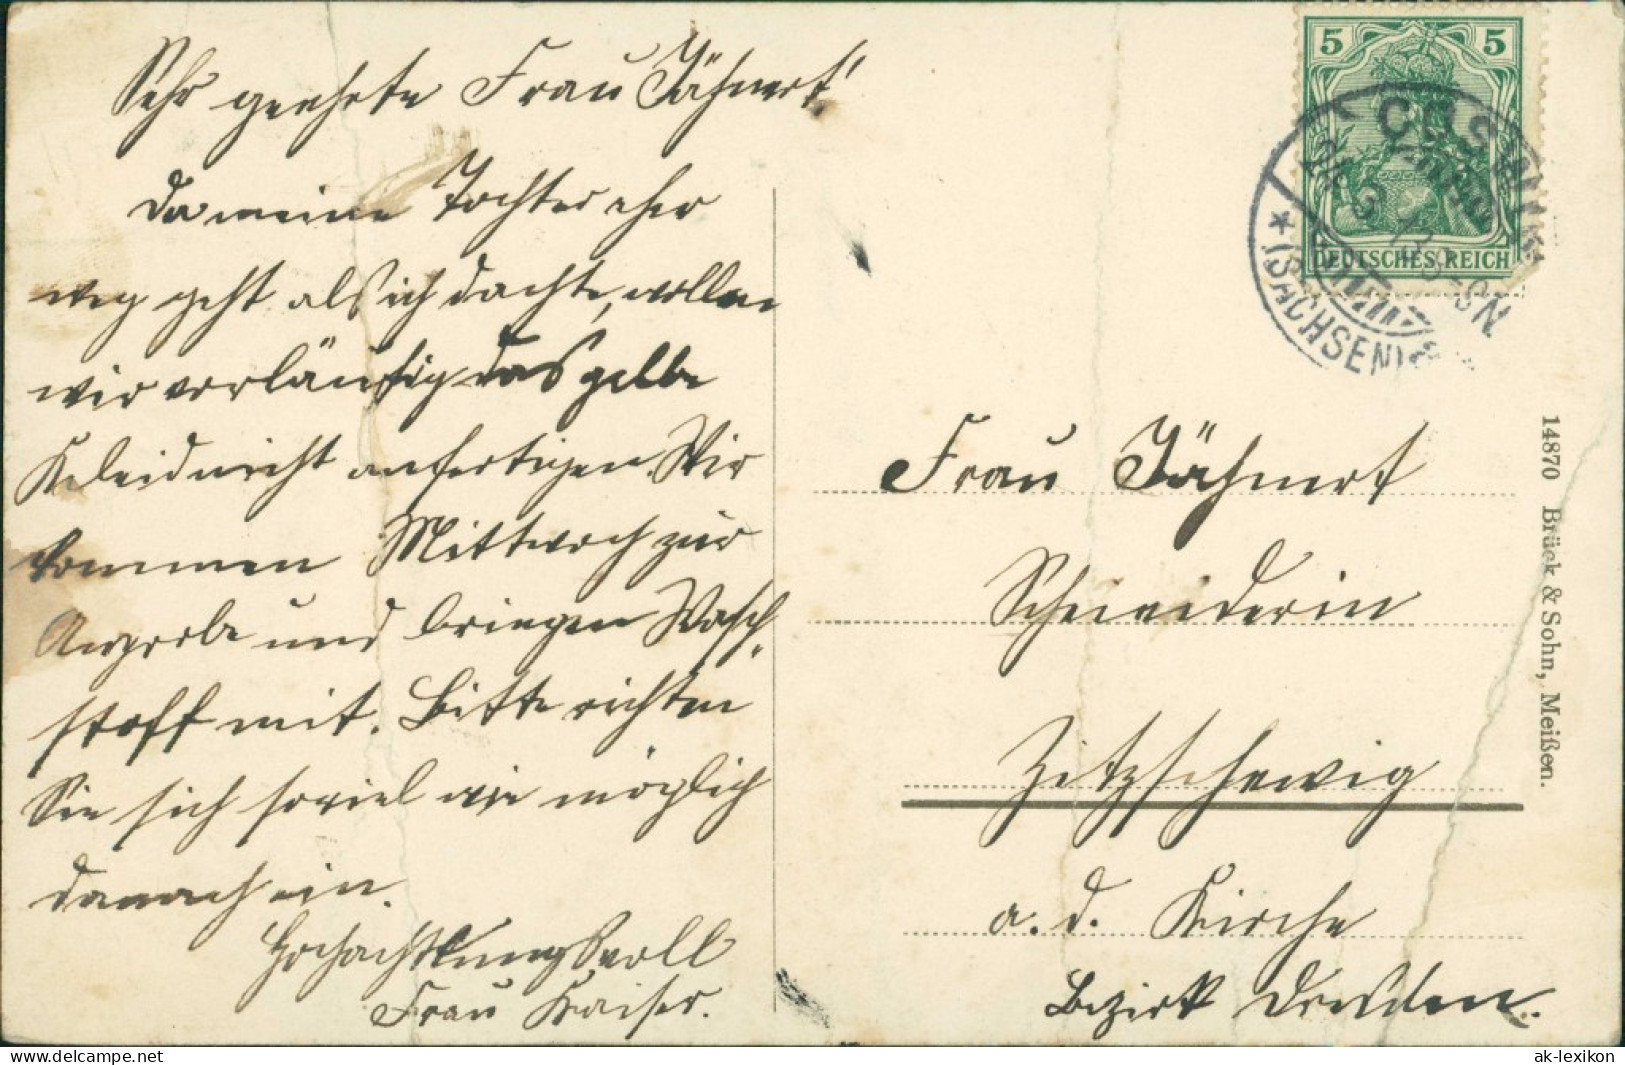 Sehr geehrte Frau Jähnert!
Da meine Tochter eher
weg geht als ich dachte, wollen
wir vorläufig das gelbe
Kleid nicht anfertigen. Wir
kommen Mittwoch zur
Anprobe und bringen Wasch-
stoff mit. Bitte richten
Sie sich soviel wie möglich
danach ein.
Hochachtungsvoll
Frau Kaiser.
5 5
DEUTSCHES REICH
(SACHSEN)
Frau Jähnert
Schneiderin
Zitzschewig
a. d. Kirche
Bezirk Dresden.
14870 Brück & Sohn, Meißen.
ak-ansichtskarten.de